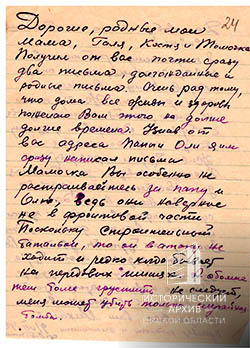 24
Дорогие, родные мои
Мама, Галя, Костя и Томочка
Получил от вас почти сразу
два письма, долгожданные и
родные письма. Очень рад тому,
что дома все живы и здоровы
пожелаю Вам этого на долгие
долгие времена. Узнав от
вас адреса Папы и Оли я им
сразу написал письма
Мамочка Вы особенно не
растраивайтесь за папу и
Олю, ведь они наверное
не в фронтовой части
Поскольку Строительный
батальон, то он в атаку не
ходит и редко когда бывает
на передовых линиях. А обо мне
тем более грустить не следует,
меня может убить только случайная
бомба.
ИСТОРИЧЕСКИЙ
АРХИВ
ОМСКОЙ ОБЛАСТИ